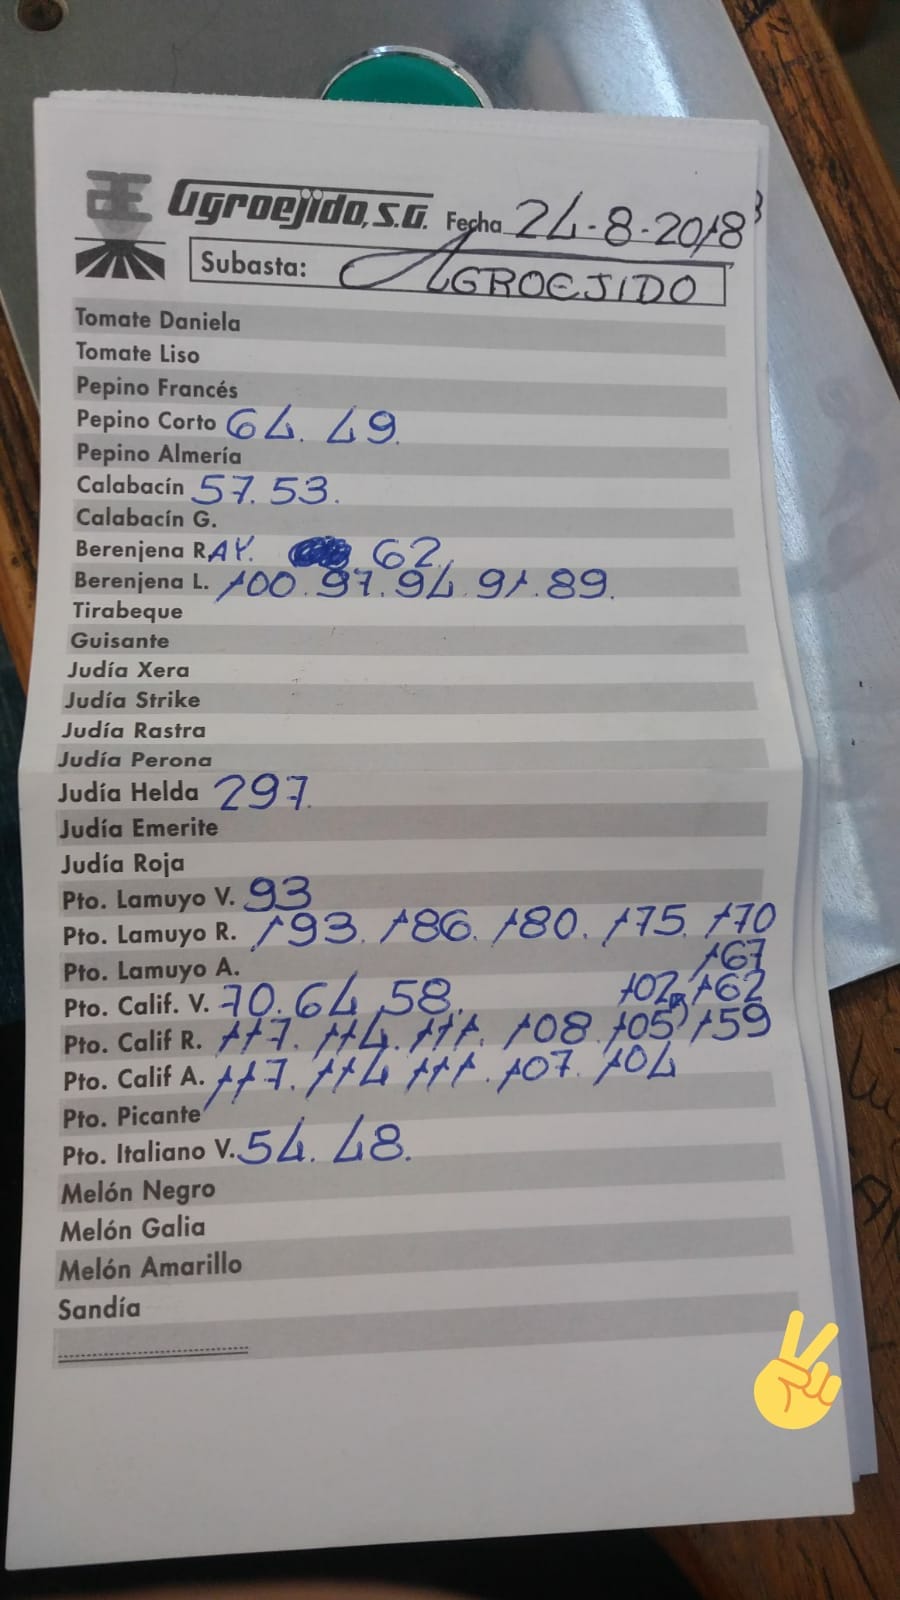 Agroejido, S.G. Fecha 24-8-2018
Subasta: AGROEJIDO
Tomate Daniela
Tomate Liso
Pepino Francés
Pepino Corto 64. 49.
Pepino Almería
Calabacín 57. 53.
Calabacín G.
Berenjena RAY. 62.
Berenjena L. 100. 97. 94. 91. 89.
Tirabeque
Guisante
Judía Xera
Judía Strike
Judía Rastra
Judía Perona
Judía Helda 297.
Judía Emerite
Judía Roja
Pto. Lamuyo V. 93
Pto. Lamuyo R. 193. 186. 180. 175. 170
Pto. Lamuyo A. 167
Pto. Calif. V. 70. 64. 58. 102 162
Pto. Calif R. 117. 114. 111. 108. 105 159
Pto. Calif A. 117. 114 111. 107. 104
Pto. Picante
Pto. Italiano V. 54. 48.
Melón Negro
Melón Galia
Melón Amarillo
Sandía